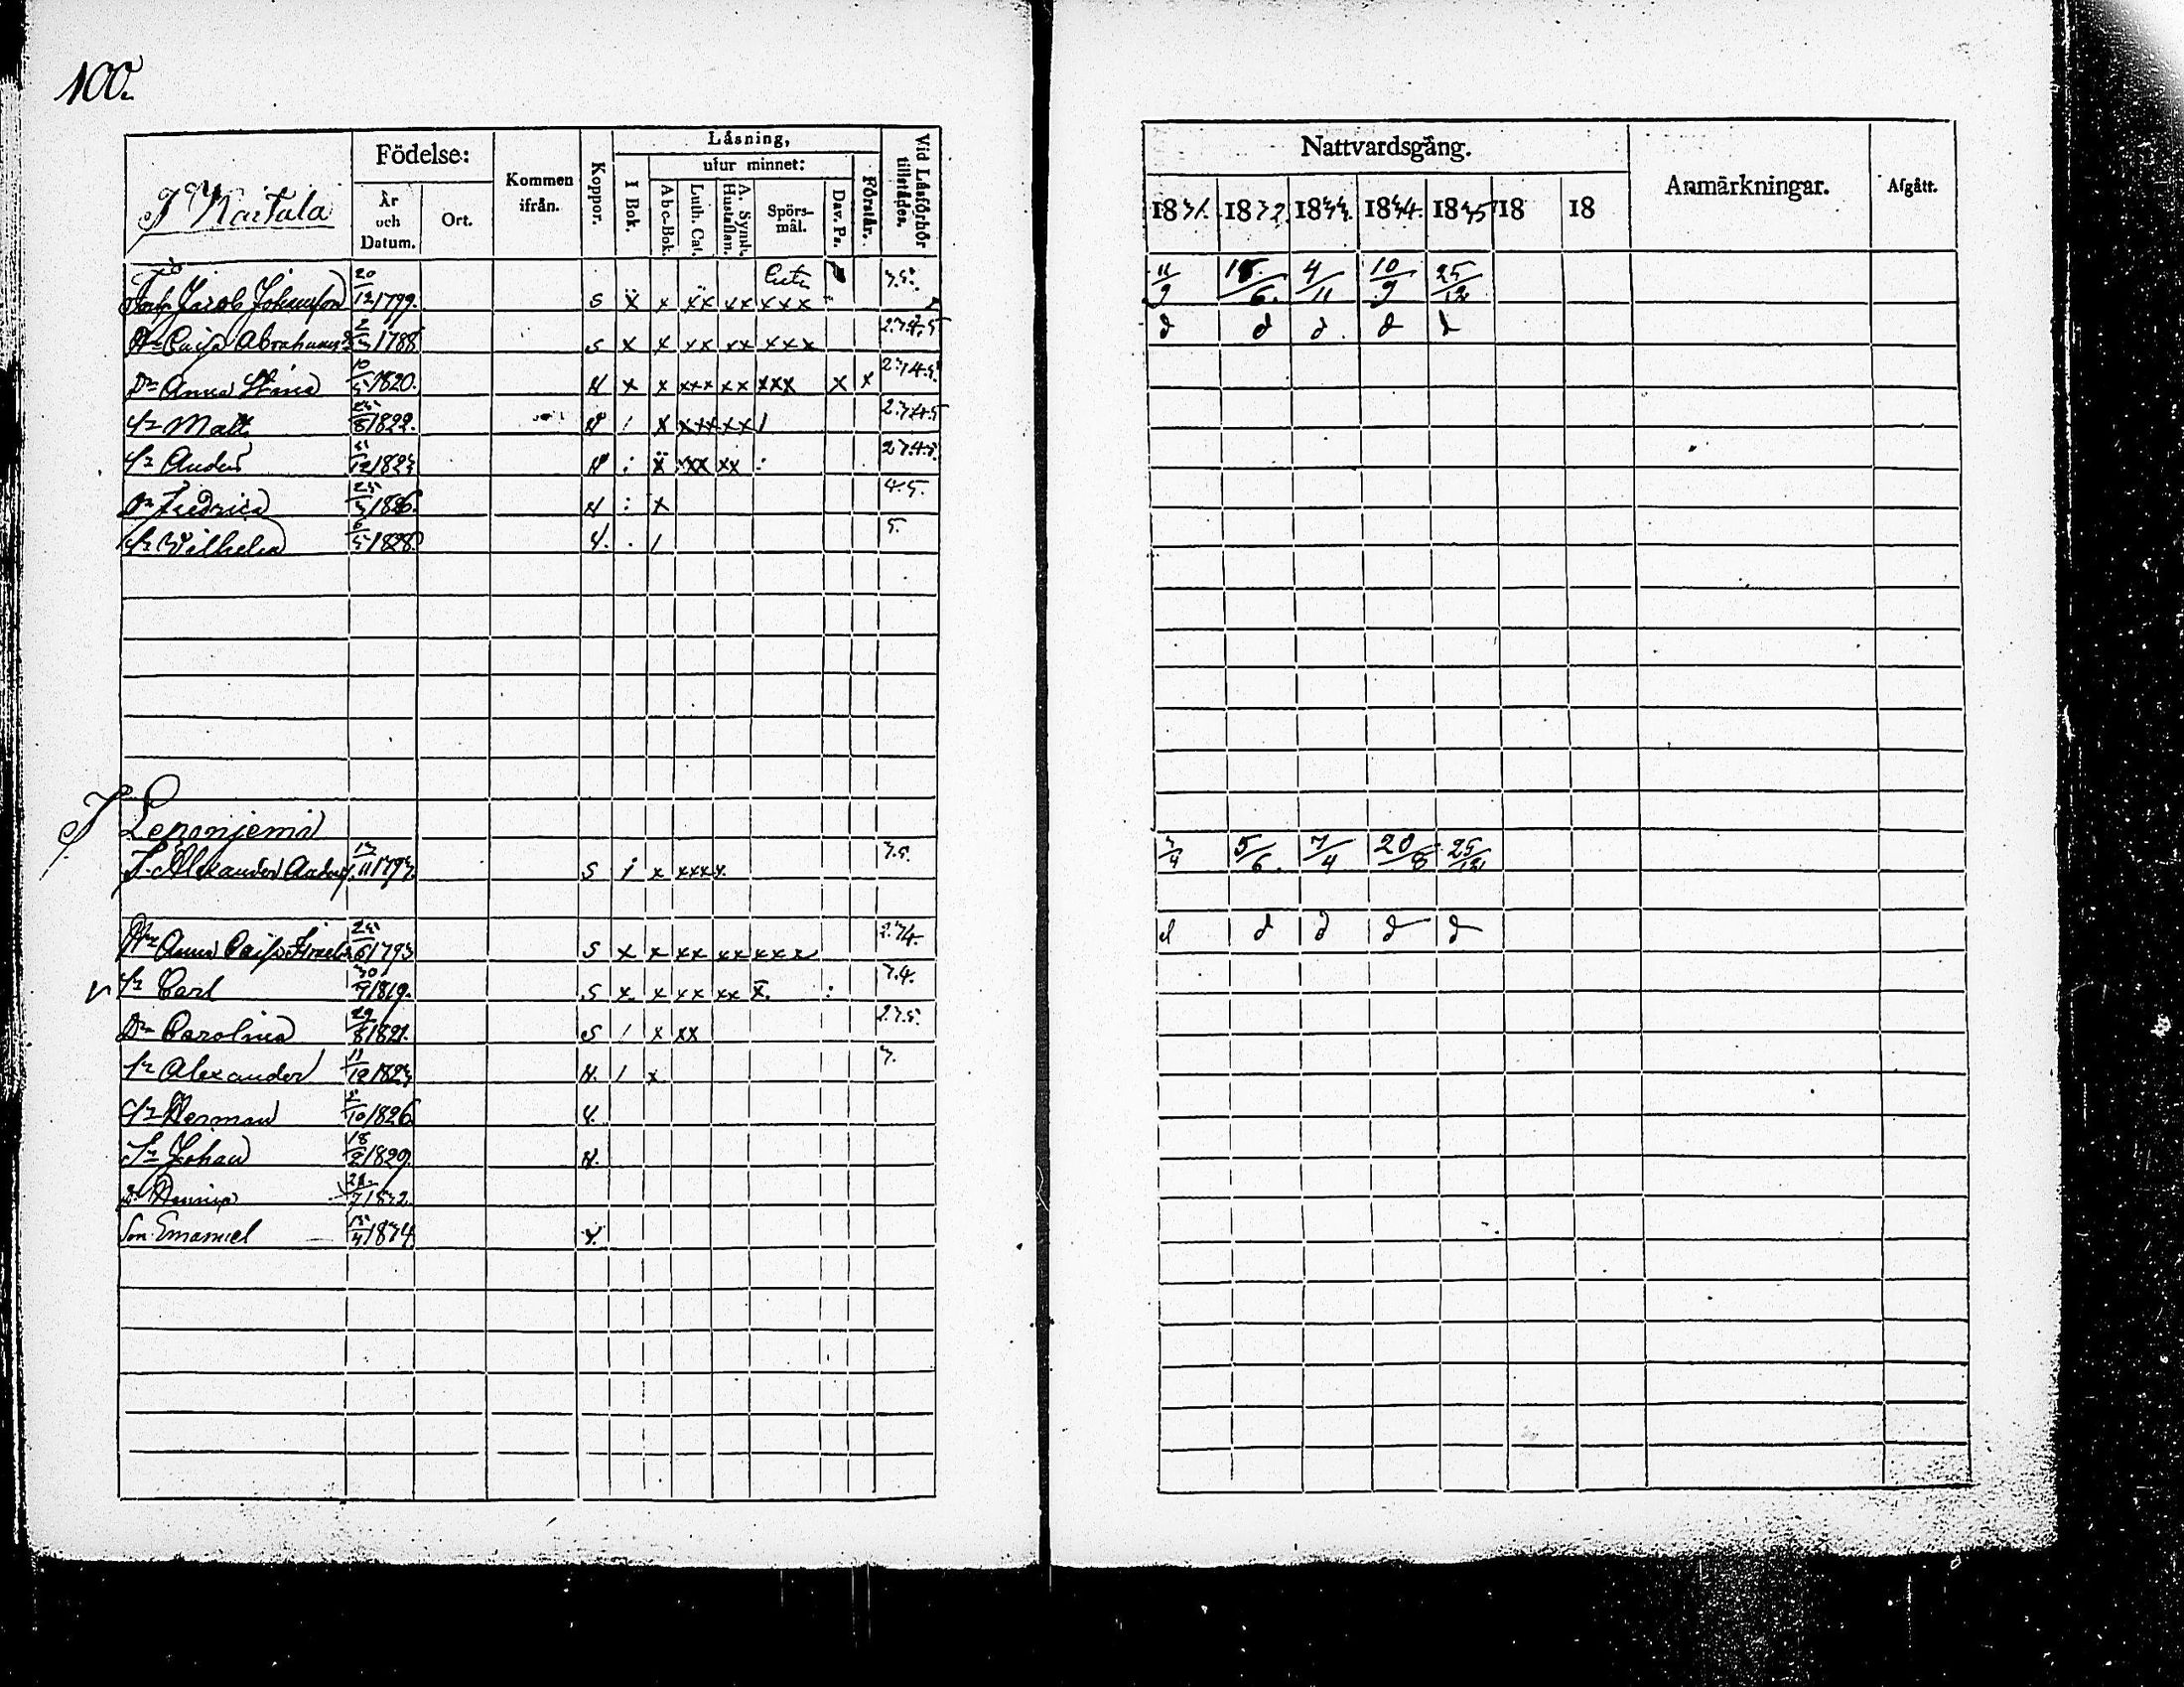 100.
J Kaitala
Födelse:
År och Datum.
Ort.
Kommen ifrån.
Koppor.
Läsning,
I Bok.
utur minnet:
Abc-Bok.
Luth. Cat.
A. Symb. Hustaflan.
Spörs-mål.
Dav. Ps.
Förstår.
Vid Läsförhör tillstädes.
Nattvardsgång.
1831. 1832. 1833. 1834. 1835 18 18
Anmärkningar.
Afgått.
Jacob Johansson 20/12 1799. S x x xx xx xxx 3.5. 11/9 18/6. 4/11 10/9 25/12
Hu Caisa Abrahamsd 1788 S x x xx xx xxx 2.3.4.5 d d d. d d
Dr Anna Stina 1820. H x x xxx xx xxx x x 2.3.4.5.
Sn Matts 8 1822. H / x xxx xx / 2.3.4.5
Sn Anders 12 1823 H : x xxx xx : 2.3.4.5.
Dr Fredrica 25/3 1826. H : x 4.5.
Sn Wilhelm 6 1828 . / 5.
J Leponjemi
J. Alexander Anders. 13/11 1793. S i x xxxx 3.5. 3/4 5/6. 7/4 20/8 25/12
Hu Anna Caisa 25/6 1793 S x x xx xx xxxx 2.3.4. d d d d d
Sn Carl 30/9 1819. S x x xx xx x. : 3.4.
Dr Carolina 29/8 1821. S / x xx 2.3.5.
Sn Alexander 11/12 1823 H. / x 3.
Sn Herman 10 1826
Sn Johan 18/2 1829. H.
Dr 7 1832.
Son Emanuel 15/4 1834.